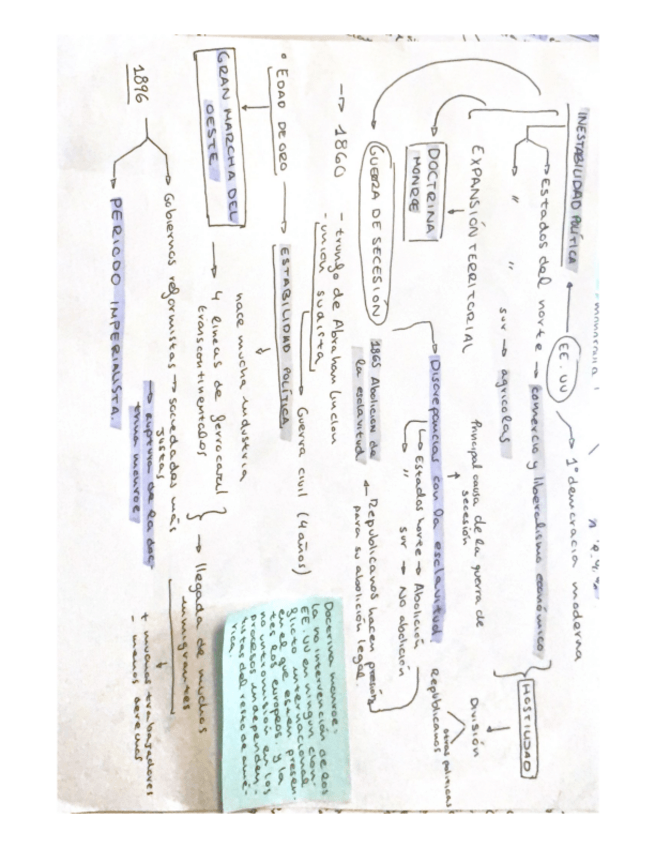 EE.UU → 1ª democracia moderna
INESTABILIDAD POLÍTICA
Estados del norte → comercio y liberalismo económico
" " sur → agrícolas
HOSTILIDAD
EXPANSIÓN TERRITORIAL
Principal causa de la guerra de
secesión
División
Republicanos
otras políticas
DOCTRINA
MONROE
Discrepancias con la esclavitud
Estados norte → Abolición
" sur → No abolición
GUERRA DE SECESIÓN
1865 Abolición de
la esclavitud
← Republicanos hacen presión
para su abolición legal.
→ 1860
- triunfo de Abraham Lincion
- unión sudista
Guerra civil (4 años)
• EDAD DE ORO → ESTABILIDAD POLÍTICA
nace mucha industria
GRAN MARCHA DEL
OESTE
→ 4 líneas de ferrocaril
transcontinentales
} → llegada de muchos
inmigrantes
+ muchos trabajadores
- menos derechos
1896
Gobiernos reformistas → sociedades más
justas
PERIODO IMPERIALISTA.
→ ruptura de la doc-
trina monroe
Doctrina monroe:
la no intervención de los
EE.UU en ningun con-
flicto internacional
en el que esten presen-
tes los europeos y la
no intromisión en los
procesos independen-
tistas del resto de amé-
rica.